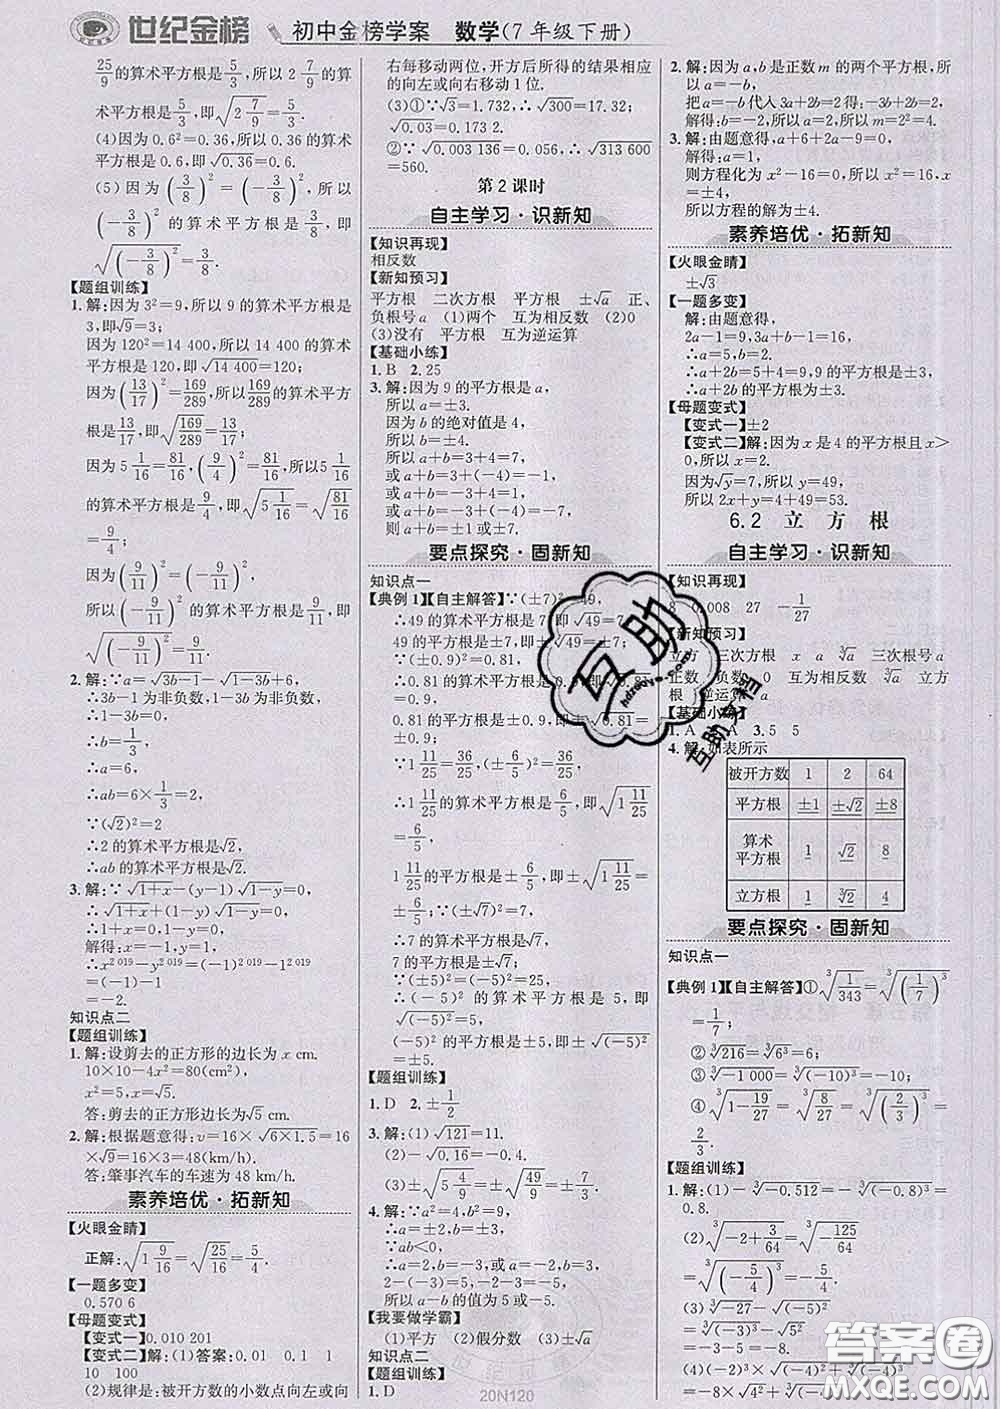 世纪金榜 初中金榜学案 数学(7年级下册)
25/9的算术平方根是5/3,所以2 7/9的算
术平方根是5/3,即√(2 7/9)=5/3.
(4)因为0.6²=0.36,所以0.36的算术
平方根是0.6,即√0.36=0.6.
(5)因为(3/8)²=(-3/8)²,所以
(-3/8)²的算术平方根是3/8,即
√((-3/8)²)=3/8.
【题组训练】
1.解:因为3²=9,所以9的算术平方根是
3,即√9=3;
因为120²=14 400,所以14 400的算术
平方根是120,即√14 400=120;
因为(13/17)²=169/289,所以169/289的算术平方
根是13/17,即√(169/289)=13/17;
因为5 1/16=81/16,(9/4)²=81/16,所以5 1/16
的算术平方根是9/4,即√(5 1/16)=√(81/16)
=9/4;
因为(9/11)²=(-9/11)²,
所以(-9/11)²的算术平方根是9/11,即
√((-9/11)²)=9/11.
2.解:∵a=√(3b-1)-√(1-3b)+6,
∴3b-1为非负数,1-3b为非负数,
∴1-3b=0,
∴b=1/3,
∴a=6,
∴ab=6×1/3=2,
∵(√2)²=2
∴2的算术平方根是√2,
∴ab的算术平方根是√2.
3.解:∵√(1+x)-(y-1)√(1-y)=0,
∴√(1+x)+(1-y)√(1-y)=0,
∴1+x=0,1-y=0,
解得:x=-1,y=1,
∴x^2 019-y^2 019=(-1)^2 019-1^2 019=-1-1
=-2.
知识点二
【题组训练】
1.解:设剪去的正方形的边长为x cm.
10×10-4x²=80(cm²),
x²=5,x=√5.
答:剪去的正方形边长为√5 cm.
2.解:根据题意得:v=16×√(6×1.5)=16
×√9=16×3=48(km/h),
答:肇事汽车的车速为48 km/h.
素养培优·拓新知
【火眼金睛】
正解:√(1 9/16)=√(25/16)=5/4.
【一题多变】
0.570 6
【母题变式】
【变式一】0.010 201
【变式二】解:(1)答案:0.01 0.1 1
10 100
(2)规律是:被开方数的小数点向左或向
右每移动两位,开方后所得的结果相应
的向左或向右移动1位.
(3)①∵√3=1.732,∴√300=17.32,
√0.03=0.173 2.
②∵√0.003 136=0.056,∴√313 600
=560.
第2课时
自主学习·识新知
【知识再现】
相反数
【新知预习】
平方根 二次方根 平方根 ±√a 正、
负根号a (1)两个 互为相反数 (2)0
(3)没有 平方根 互为逆运算
【基础小练】
1.B 2.25
3.解:因为9的平方根是a,
所以a=±3.
因为b的绝对值是4,
所以b=±4,
所以a+b=3+4=7,
或a+b=3+(-4)=-1,
或a+b=-3+4=1,
或a+b=-3+(-4)=-7,
则a+b=±1或±7.
要点探究·固新知
知识点一
【典例1】【自主解答】∵(±7)²=49,
∴49的算术平方根是7,即√49=7,
49的平方根是±7,即±√49=±7;
∵(±0.9)²=0.81,
∴0.81的算术平方根是0.9,即√0.81=
0.9,
0.81的平方根是±0.9,即±√0.81=
±0.9;
∵1 11/25=36/25,(±6/5)²=36/25,
∴1 11/25的算术平方根是6/5,即√(1 11/25)
=6/5,
1 11/25的平方根是±6/5,即±√(1 11/25)=
±6/5;
∵(±√7)²=7,
∴7的算术平方根是√7,
7的平方根是±√7;
∵(-5)²=(±5)²,
∴(-5)²的算术平方根是5,即
√((-5)²)=5,
(-5)²的平方根是±5,即±√((-5)²)=
±5.
【题组训练】
1.D 2.±1/2
3.解:(1)√121=11.
(2)-√0.81=-0.9.
(3)±√(4/9)=±2/3.
4.解:∵a²=4,b²=9,
∴a=±2,b=±3,
∵ab<0,
∴a=2,b=-3或a=-2,b=3,
2-(-3)=5,
-2-3=-5,
所以a-b的值为5或-5.
【我要做学霸】
(1)平方 (2)假分数 (3)±√a
知识点二
【题组训练】
1.D
2.解:因为a,b是正数m的两个平方根,所
以a=-b,
把a=-b代入3a+2b=2得:-3b+2b=2,
解得:b=-2,所以a=2,所以m=2²=4.
3.解:由题意得,a+6+2a-9=0,
解得:a=1,
则方程化为x²-16=0,所以x²=16,x
=±4,
所以方程的解为±4.
素养培优·拓新知
【火眼金睛】
±√3
【一题多变】
解:由题意得,
2a-1=9,3a+b-1=16,
∴a=5,b=2,
∴a+2b=5+4=9,√9=±3,
∴a+2b的平方根为±3.
【母题变式】
【变式一】±2
【变式二】解:因为x是4的平方根且x>
0,所以x=2.
因为√y=7,所以y=49,
所以2x+y=4+49=53.
6.2 立方根
自主学习·识新知
【知识再现】
8 0.008 27 -1/27
【新知预习】
立方 三次方根 x a ∛a 三次根号a
正数 负数 0 互为相反数 ∛a 立方
根 逆运算 a
【基础小练】
1.A A 3.5 5
4.解:如表所示
被开方数 1 2 64
平方根 ±1 ±√2 ±8
算术平方根 1 √2 8
立方根 1 ∛2 4
要点探究·固新知
知识点一
【典例1】【自主解答】①∛(1/343)=∛((1/7)³)
=1/7;
②∛216=∛(6³)=6;
③∛(-1 000)=∛((-10)³)=-10;
④∛(1-19/27)=∛(8/27)=∛((2/3)³)=
2/3.
【题组训练】
1.解:(1)-∛(-0.512)=-∛((-0.8)³)=
0.8.
(2)∛(-2+3/64)=∛(-125/64)
=∛((-5/4)³)=-5/4.
(3)∛(-27)=∛((-3)³)=-3.
=-8×√4=-8×2
20N120
互助
hdzuoye.com
互助文档
答案圈
MXQE.COM